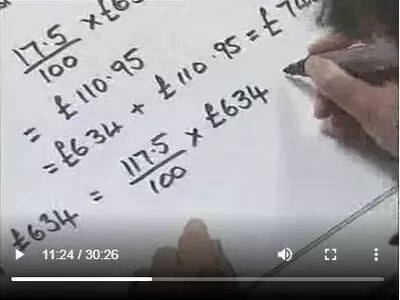 17.5/100 × £6
= £110.95
= £634 + £110.95 = £74
£634 = 117.5/100 × £634
11:24 / 30:26